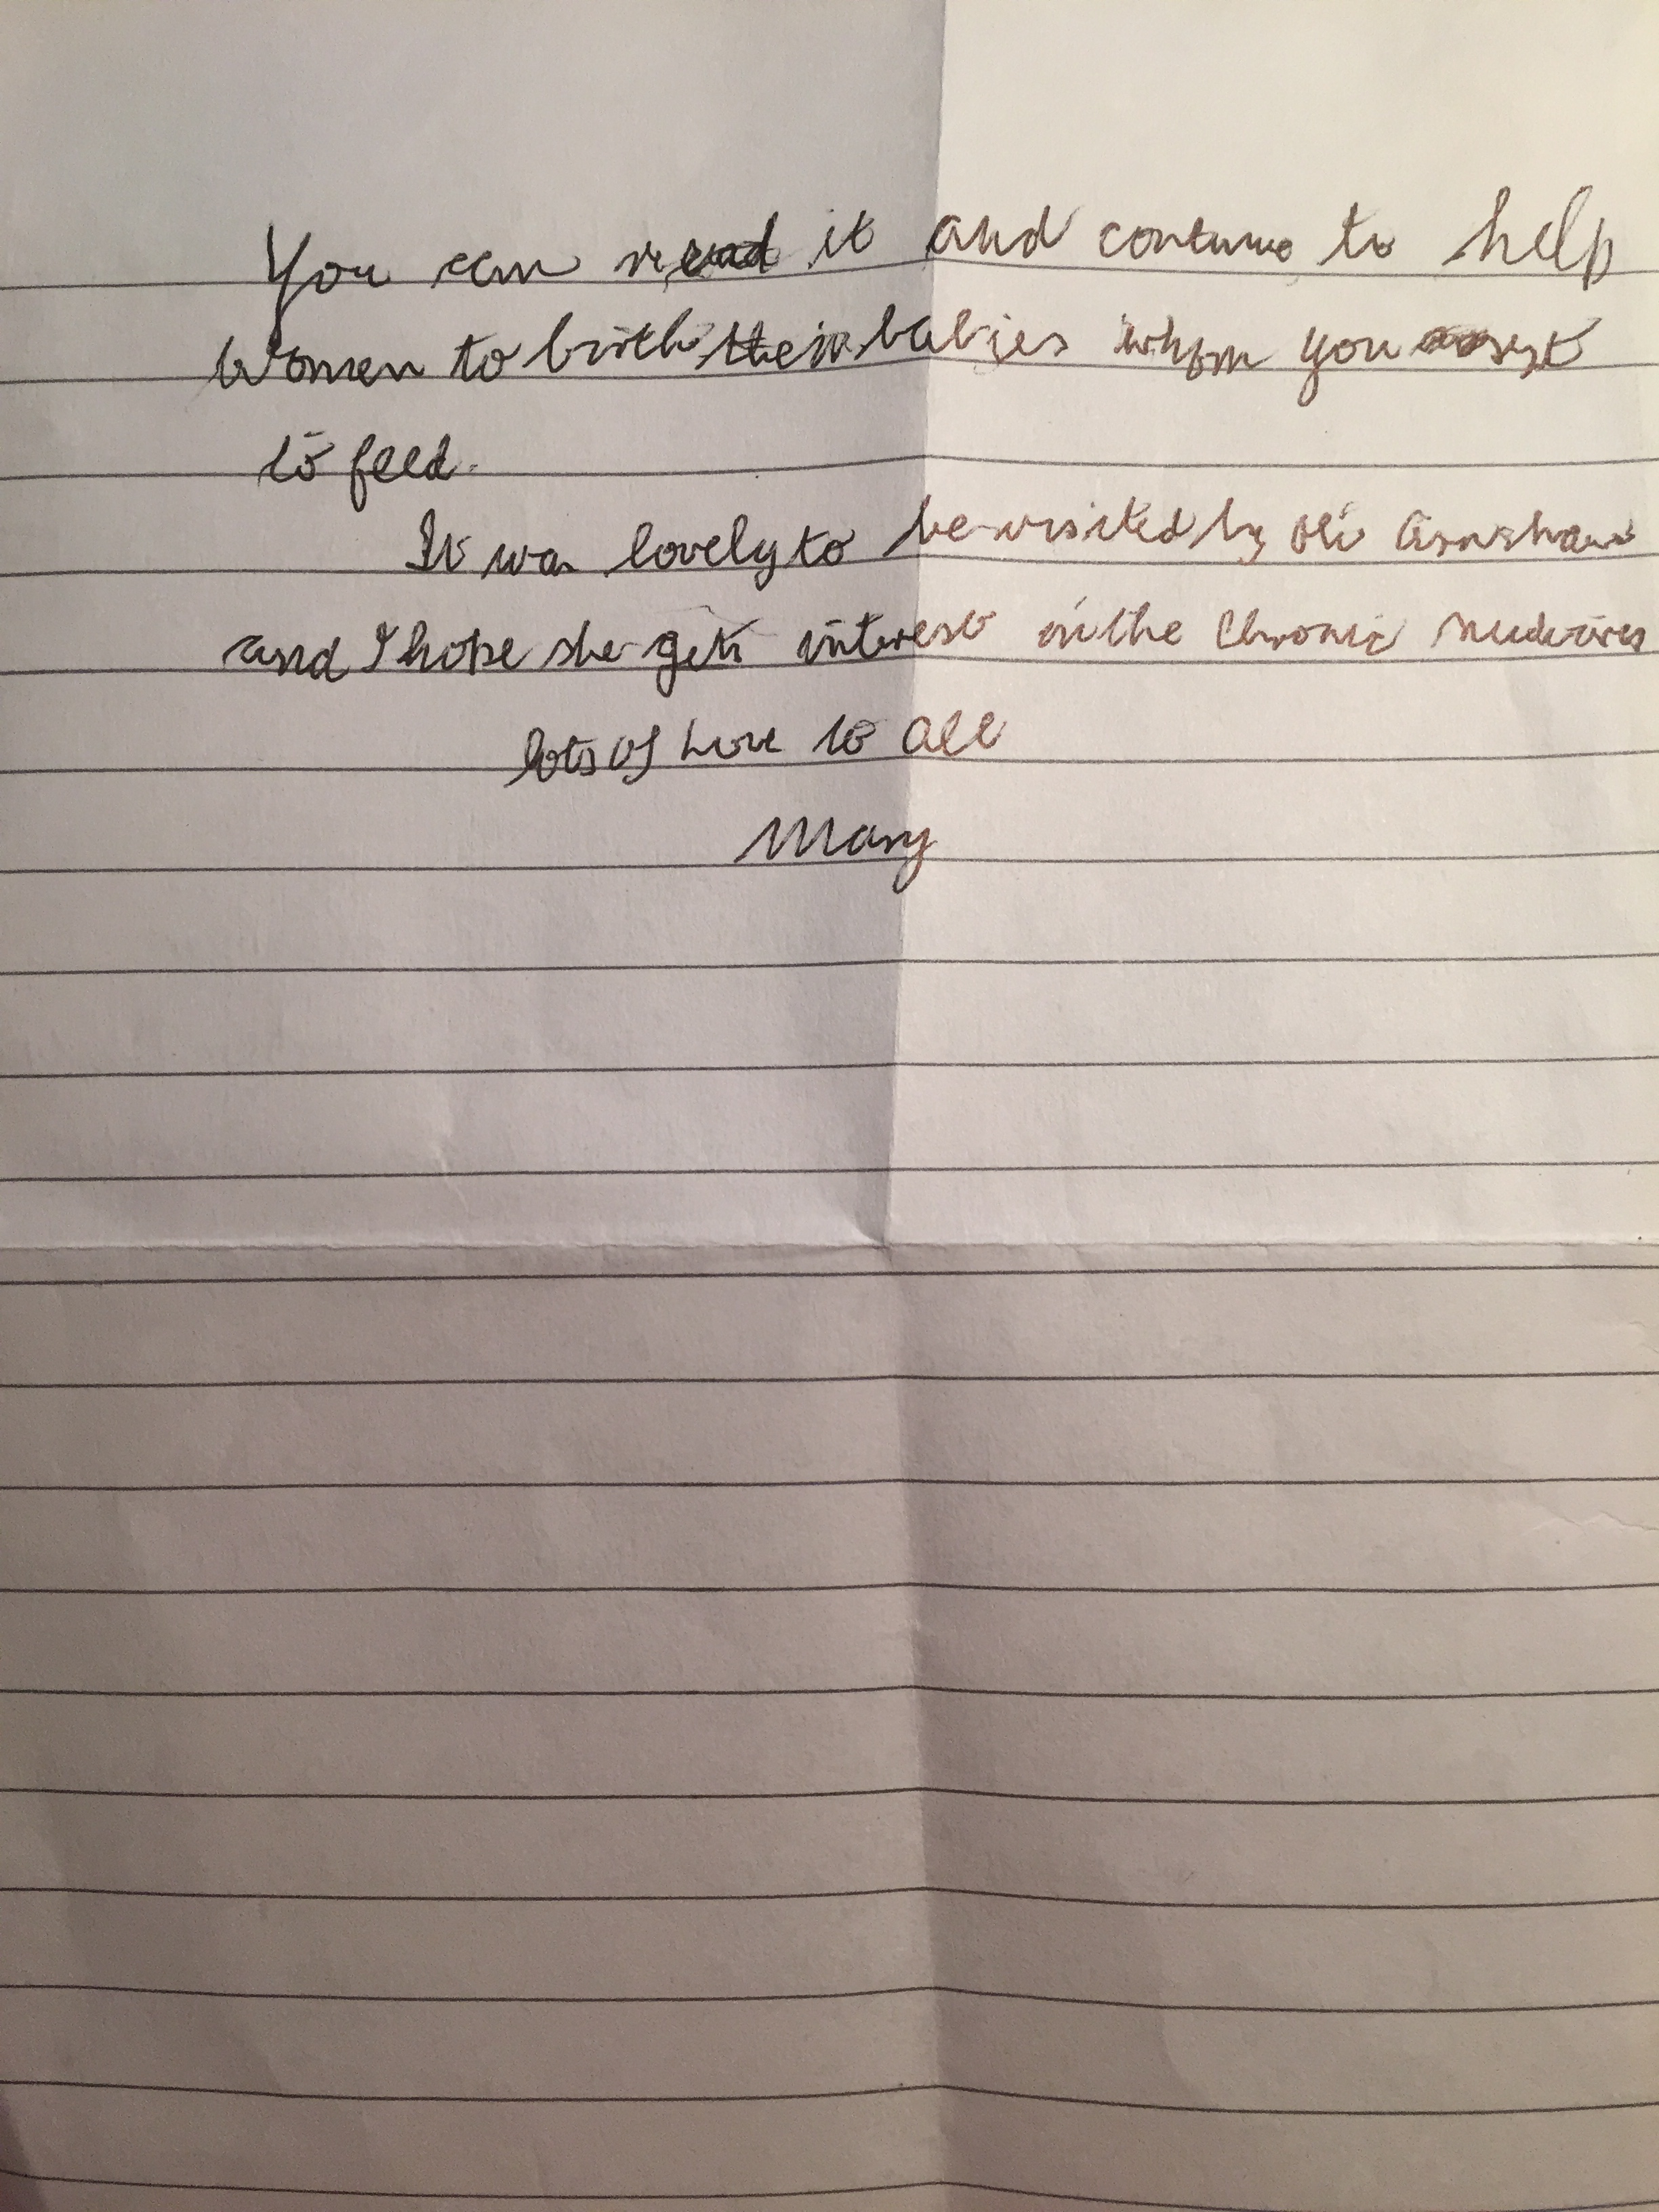 You can read it and continue to help
Women to birth their babies whom you assist
to feed.
It was lovely to be visited by
and I hope she gets interest in the Chronic Midwives
lots of love to all
Mary